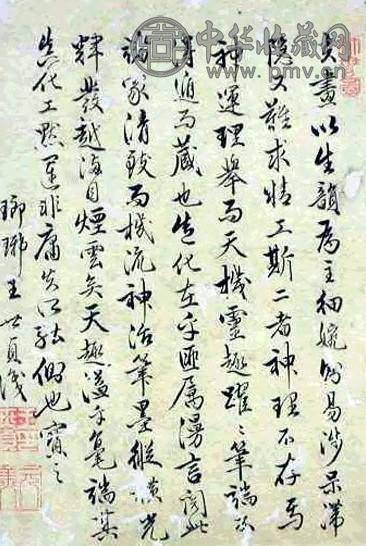 中华收藏网
www.pmv.cn
畫以生韻為主細婉則易涉呆滯
又難求情工斯二者神理不存焉
神運理舉而天機靈趣躍〻筆端
而藏也造化在手匪屬漫言閱此
諸家清而機流神洽筆墨縱橫光
輝發越海日煙雲矣天趣溢乎毫端
造化工默運非庸史所能也寶之
瑯琊王世貞識